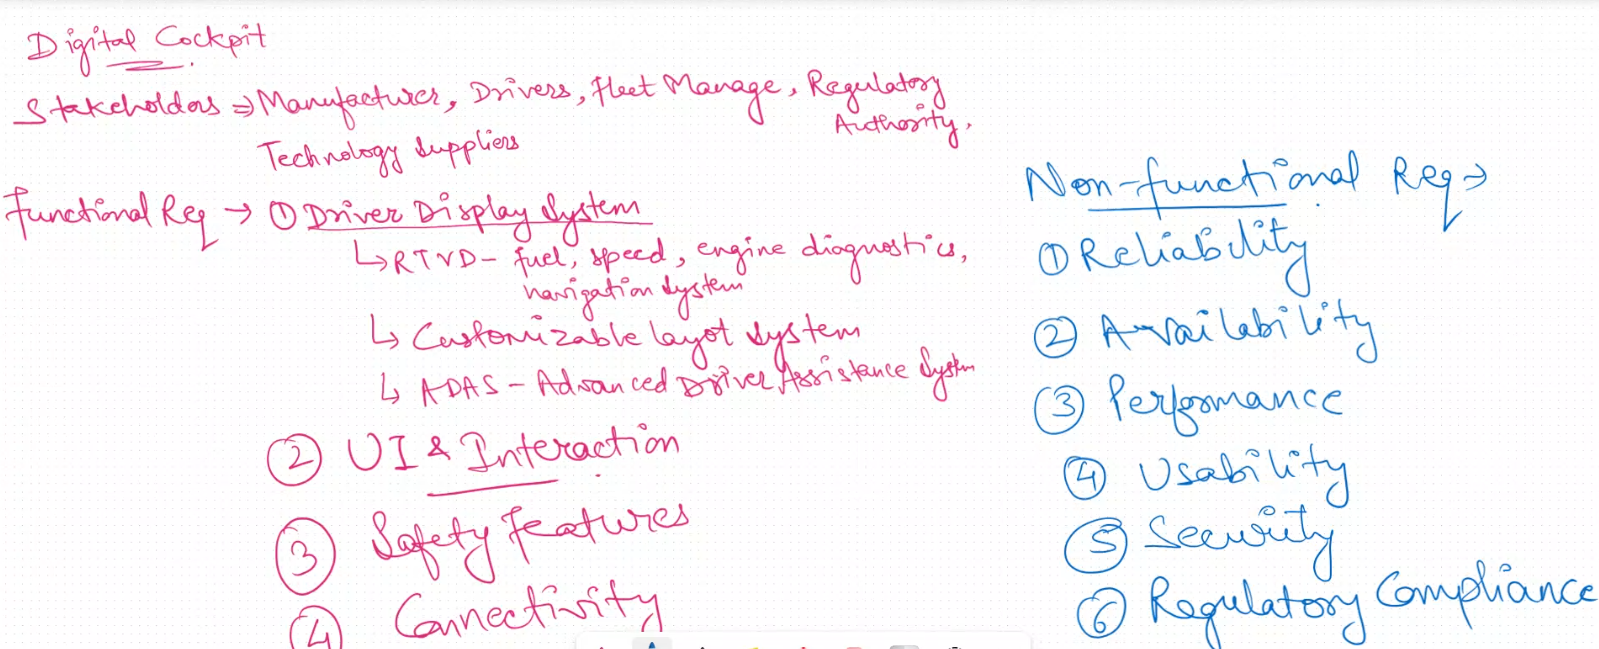 Digital Cockpit
Stakeholders ⇒ Manufacturer, Drivers, Fleet Manage, Regulatory
Authority,
Technology Suppliers
Functional Req → ① Driver Display System
↳ RTVD - fuel, speed, engine diagnostics,
navigation system
↳ Customizable layot system
↳ ADAS - Advanced Driver Assistance System
② UI & Interaction
③ Safety Features
④ Connectivity
Non-functional Req →
① Reliability
② Availability
③ Performance
④ Usability
⑤ Security
⑥ Regulatory Compliance